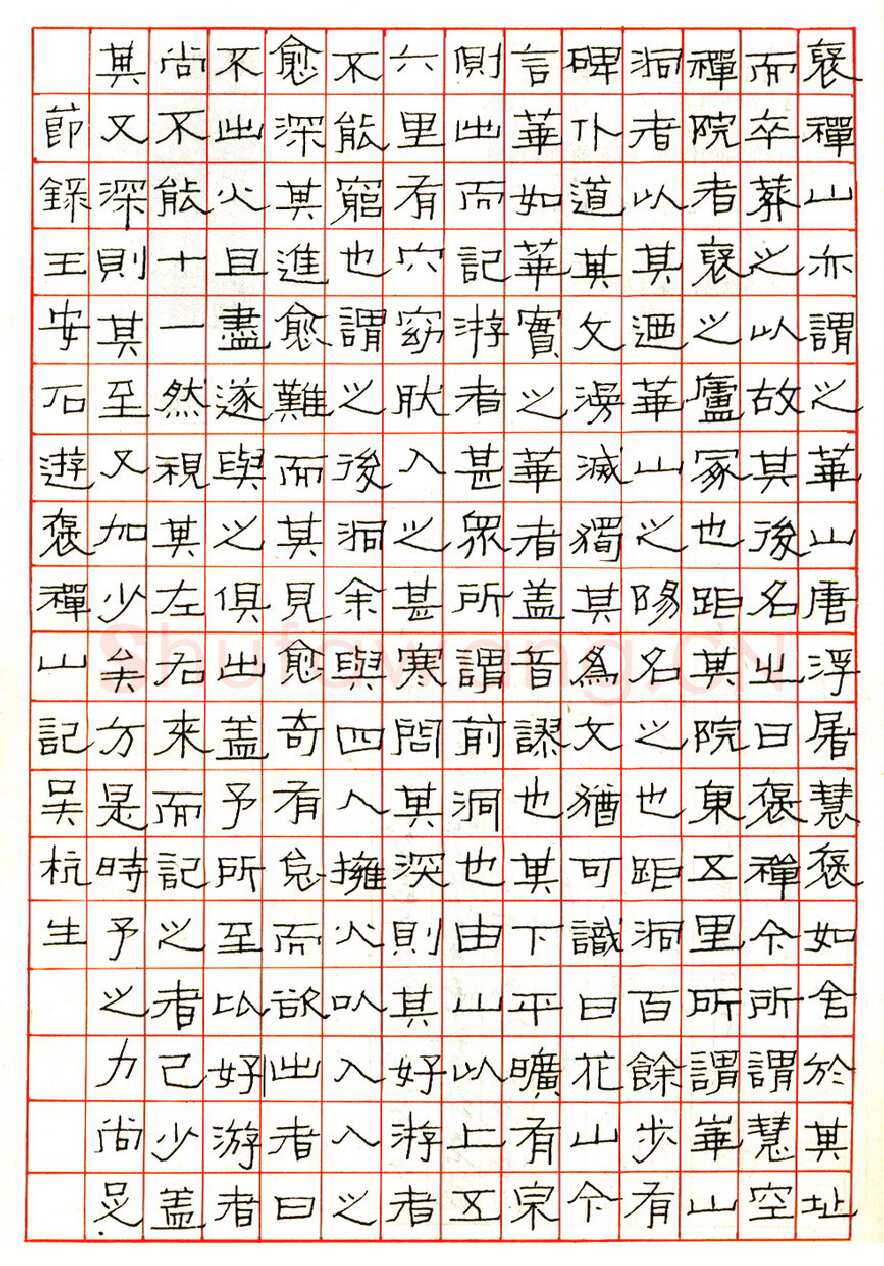 襃禪山亦謂之華山唐浮屠慧褒如舍於其址
而卒葬之以故其後名之曰褒禪今所謂慧空
禪院者襃之廬冢也距其院東五里所謂華山
洞者以其迺華山之陽名之也距洞百餘步有
碑仆道其文漫滅獨其為文猶可識曰花山今
言華如華實之華者蓋音謬也其下平曠有宗
側出而記游者甚眾所謂前洞也由山以上五
六里有穴窈肰入之甚寒問其深則其好游者
不能窮也謂之後洞余與四人擁火以入入之
愈深其進愈難而其見愈奇有怠而欲出者曰
不出火且盡遂與之俱出蓋予所至比好游者
尚不能十一然視其左右來而記之者己少蓋
其又深則其至又加少矣方是時予之力尚足
節錄王安石遊褒禪山記吳杭生
Shufawang.CN